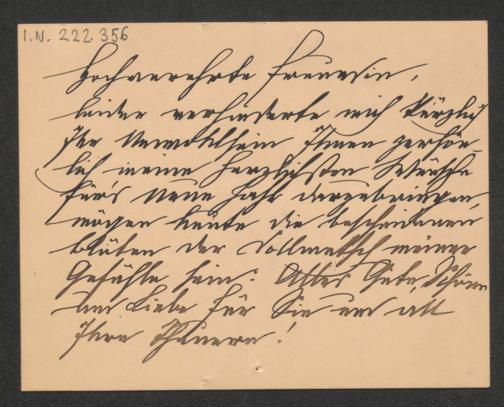 I.N. 222 356
Hochverehrte Freundin,
leider verhinderte mich kürzlich
Ihr Unwohlsein Ihnen persön-
lich meine herzlichsten Wünsche
für's Neue Jahr darzubringen,
mögen heute die bescheidenen
Blüten der Dollmetsch meiner
Gefühle sein: Alles Gute, Schöne
und Liebe für Sie und all
Ihre Theuern!